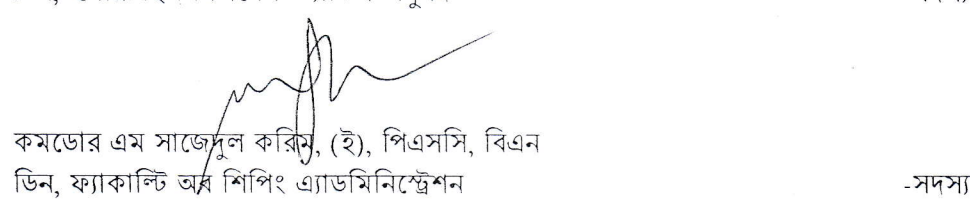 কমডোর এম সাজেদুল করিম, (ই), পিএসসি, বিএন
ডিন, ফ্যাকাল্টি অব শিপিং এ্যাডমিনিস্ট্রেশন -সদস্য